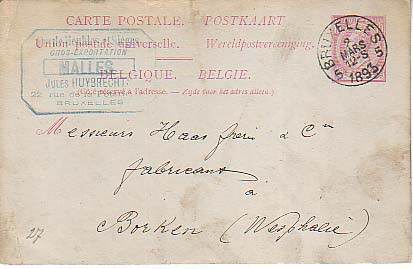 CARTE POSTALE. POSTKAART
Union postale universelle. Wereldpostvereeniging.
BELGIQUE. BELGIE.
(Côté réservé à l'adresse. — Zijde voor het adres alleen.)
GROS-EXPORTATION
MALLES
JULES HUYBRECHT
22, rue de la
BRUXELLES
BRUXELLES 5
MARS
1893
Messieurs Haas frères & Cie
fabricants
à
Borken (Westphalie)
27